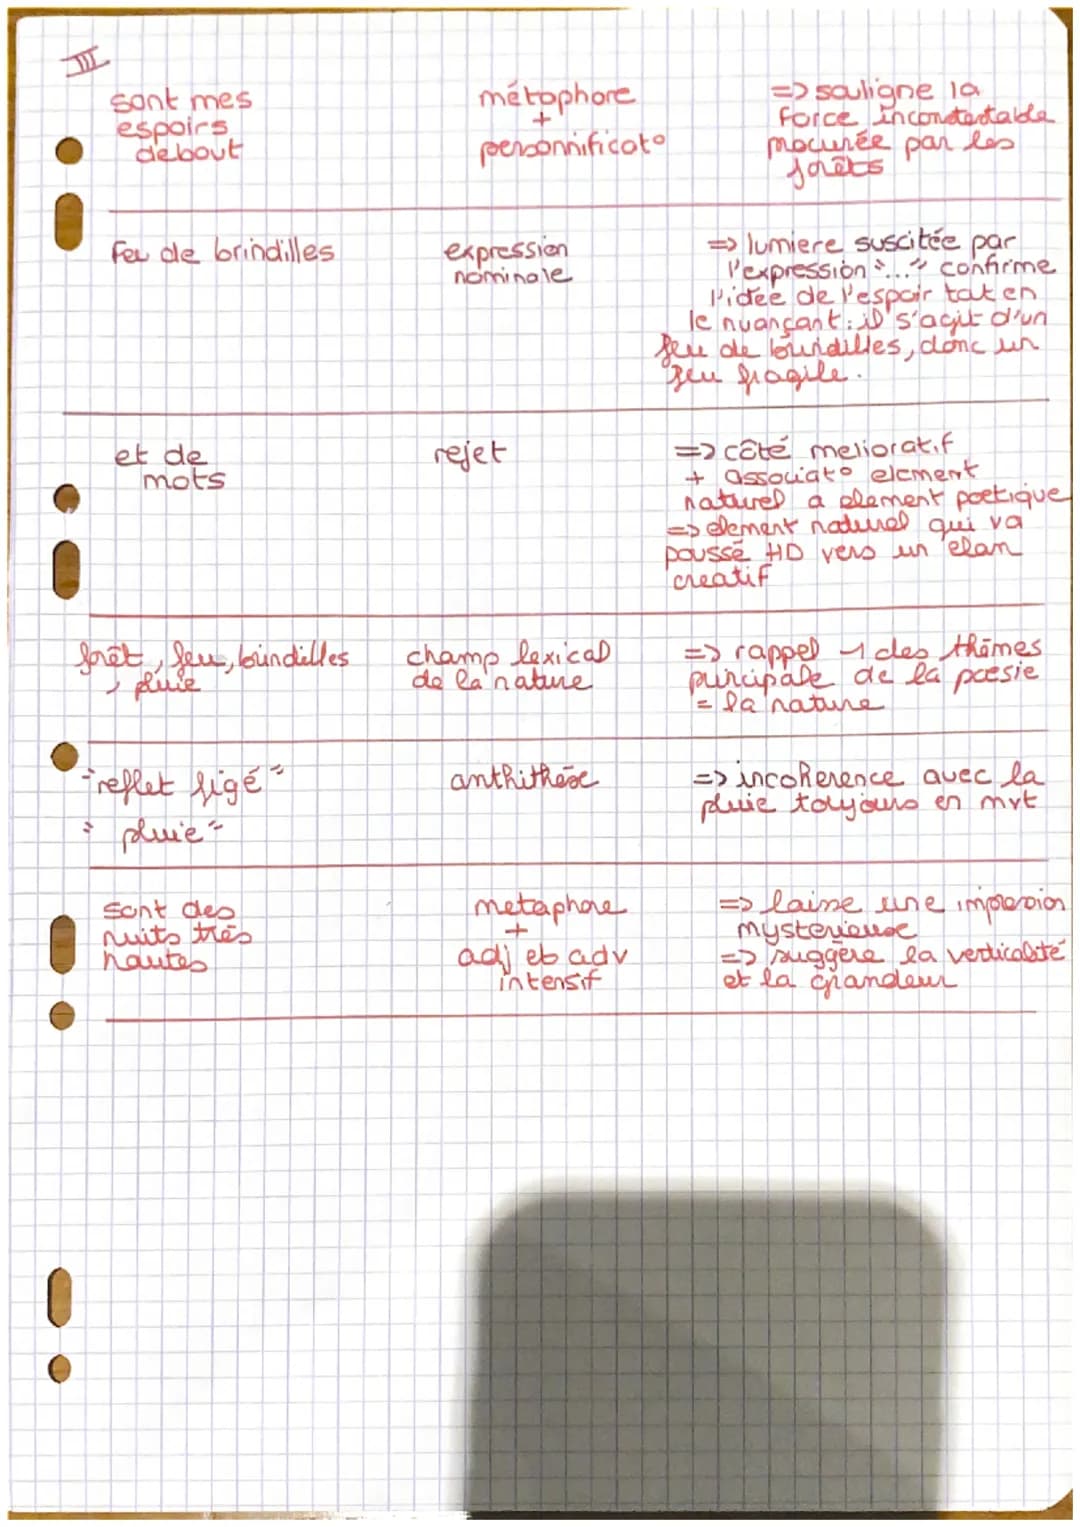 III
sont mes
espoirs
debout
métaphore
+
personnificat°
=> souligne la
force incontestable
procurée par les
forêts
Feu de brindilles
expression
nominale
=> lumiere suscitée par
l'expression "..." confirme
l'idée de l'espoir tout en
le nuançant: il s'agit d'un
feu de brindilles, donc un
feu fragile.
et de
mots
rejet
=> côté melioratif
+ associat° element
naturel a element poetique
=> element naturel qui va
poussé HD vers un elan
creatif
forêt, feu, brindilles
, pluie
champ lexical
de la nature
=> rappel 1 des thêmes
principale de la poesie
= la nature
"reflet figé"
"pluie"
anthithèse
=> incoherence avec la
pluie toujours en mvt
sont des
nuits très
hautes
metaphore
+
adj et adv
intensif
=> laisse une impression
mysterieuse
=> suggère la verticalité
et la grandeur